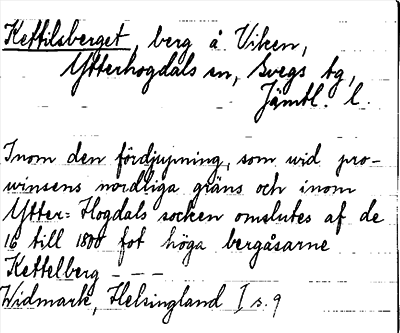 Kettilsberget, berg å Viken,
Ytterhogdals sn, Svegs tg,
Jämtl. l.
Inom den fördjupning, som wid pro-
winsens nordliga gräns och inom
Ytter=Hogdals socken omslutes af de
16 till 1800 fot höga bergåsarne
Kettelberg - - -
Widmark, Helsingland I s. 9